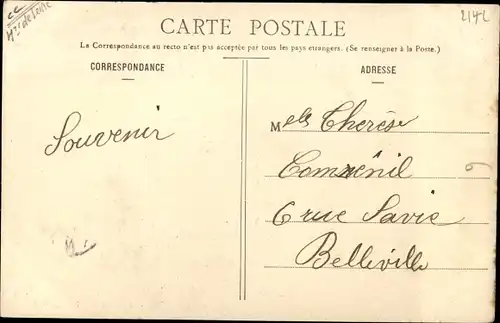 CARTE POSTALE
La Correspondance au recto n'est pas acceptée par tous les pays étrangers. (Se renseigner à la Poste.)
CORRESPONDANCE
ADRESSE
Souvenir
Melle Thérèse
Comménil
6 rue Savie
Belleville